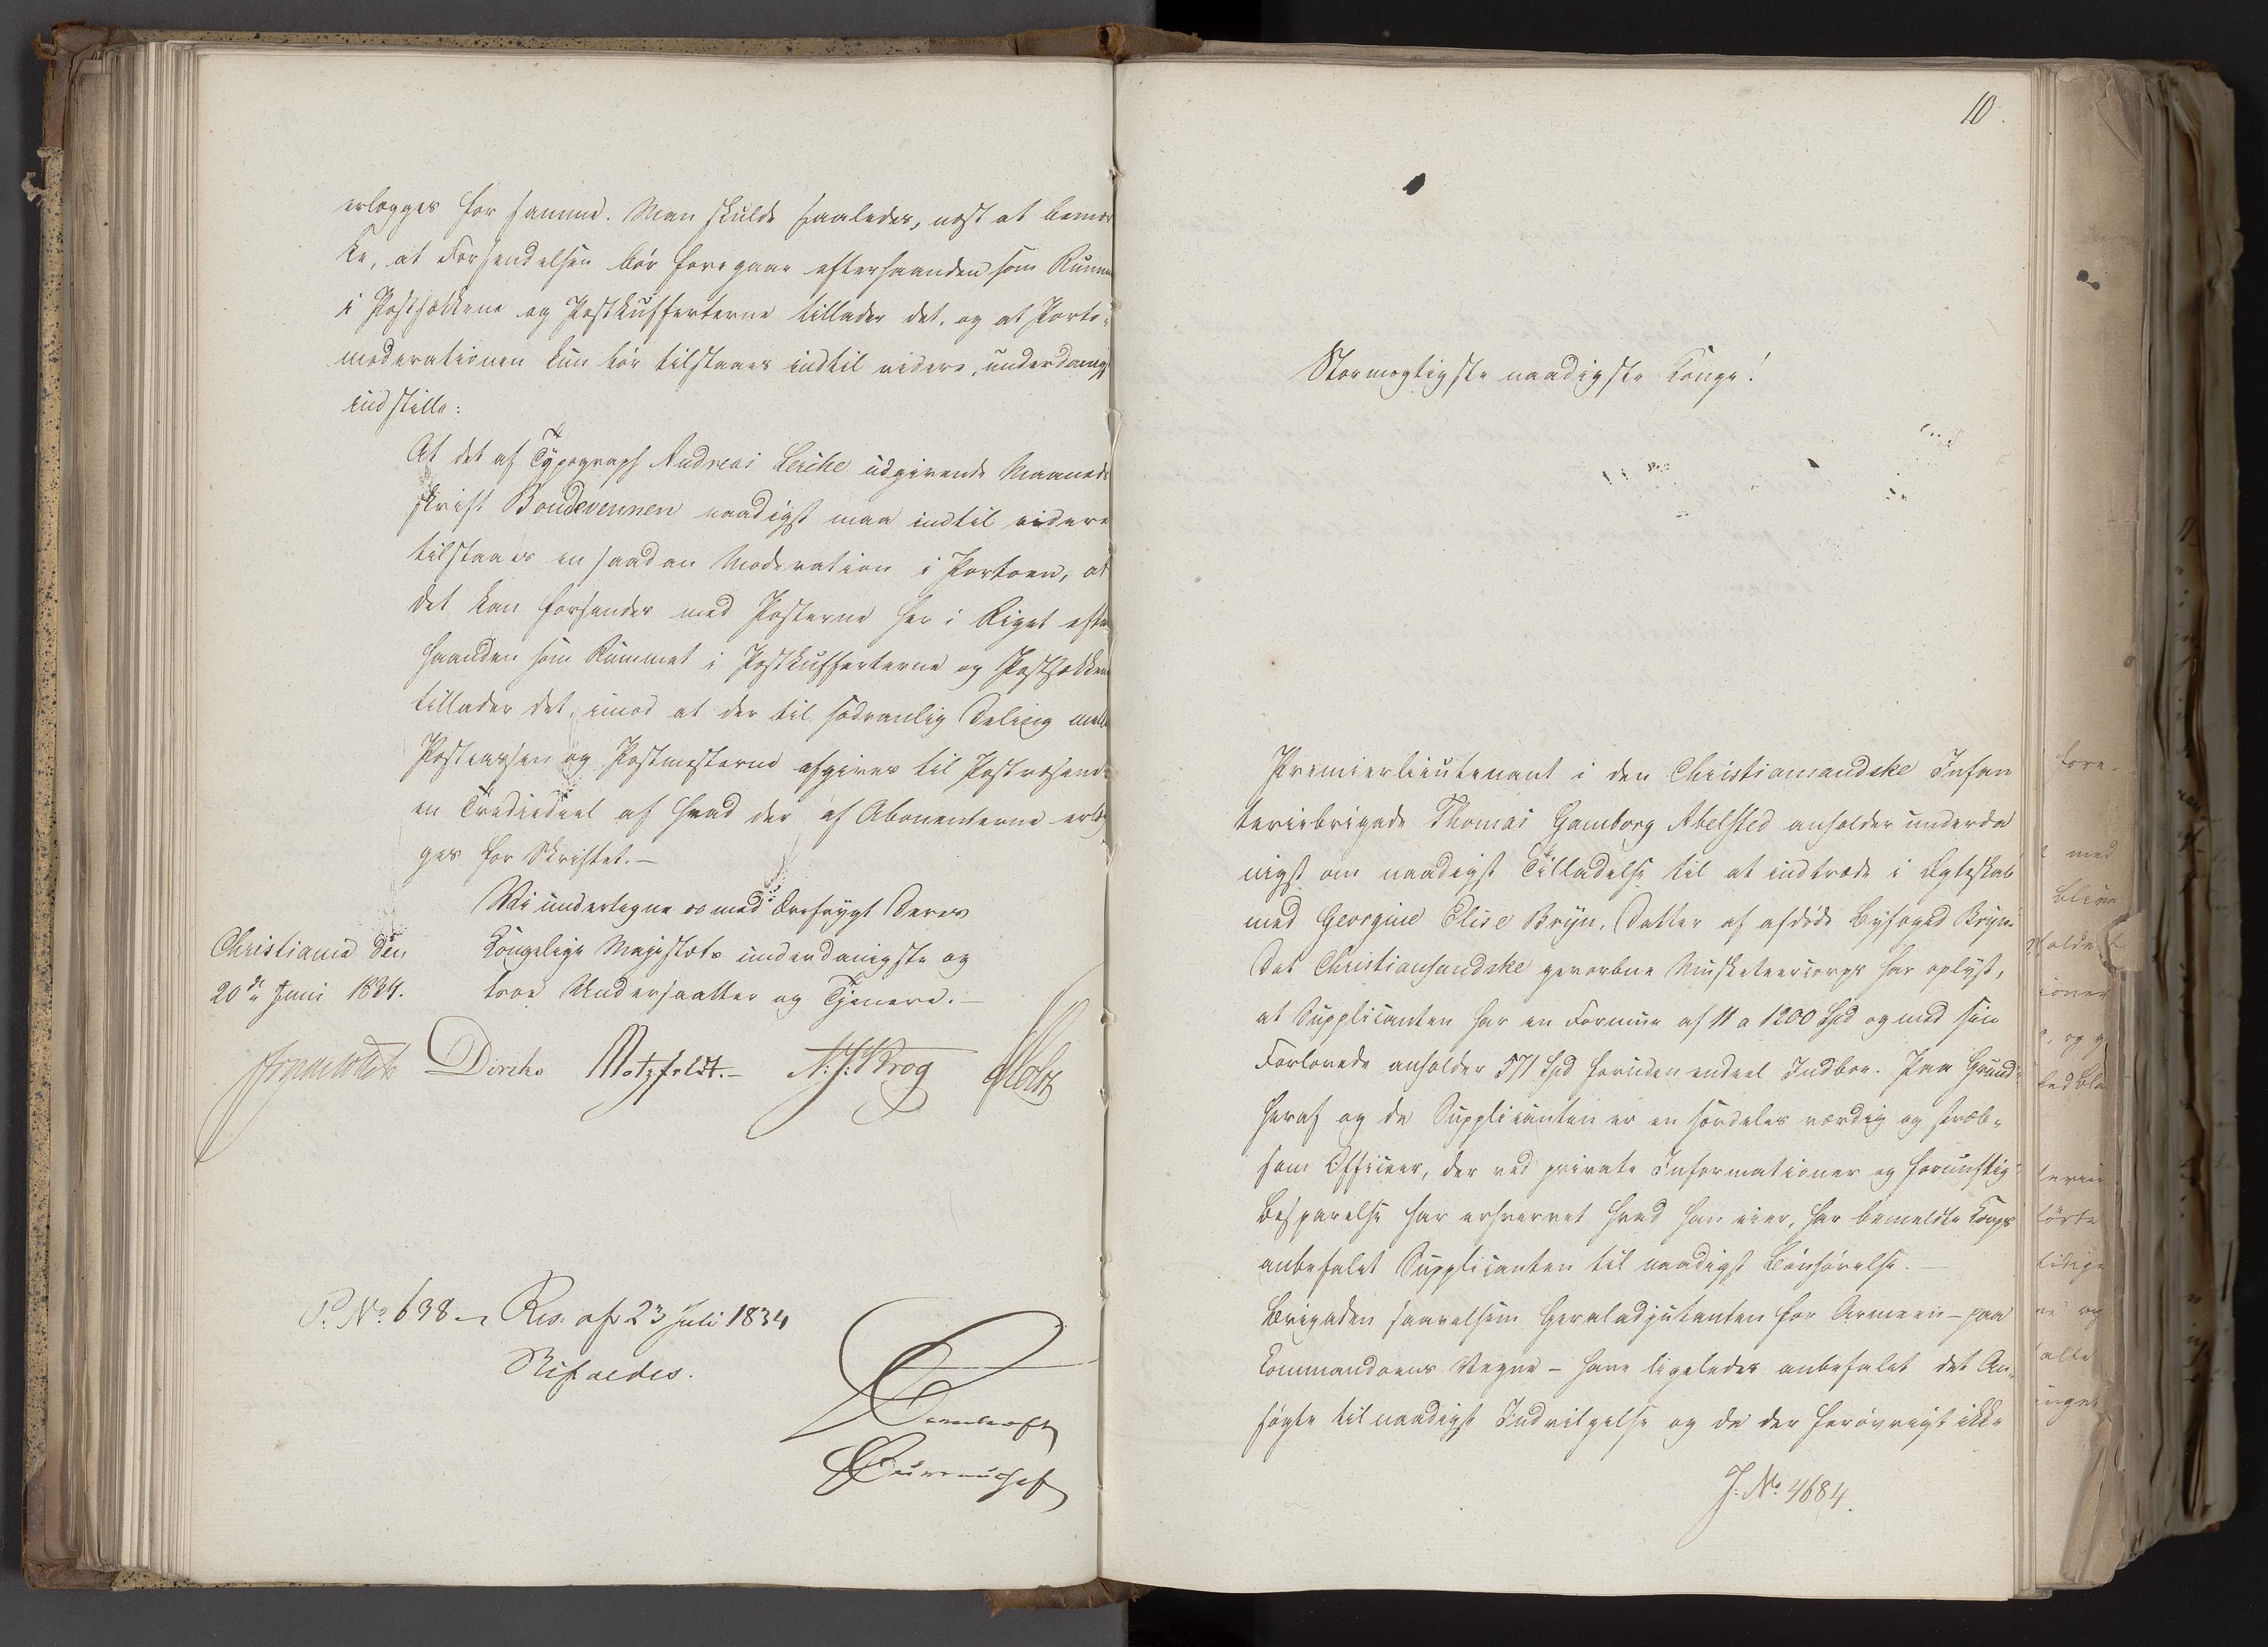 erlægges for samme. Man skulde saaledes, næst at bemær
ke, at Forsendelsen bør foregaae efterhaanden som Rummet
i Postsækkene og Postkufferterne tillader det, og at Porto-
moderationen kun bør tilstaaes indtil videre, underdanigst
indstille:
At det af Typograph Andreas Leiche udgivende Maaneds
skrift Bondevennen naadigst maa indtil videre
tilstaaes en saadan Moderation i Portoen, at
det kan forsendes med Posterne her i Riget efter
haanden som Rummet i Postkufferterne og Postsækkene
tillader det, imod at der til sædvanlig Deling mellem
Postcassen og Postmesterne afgives til Postvæsenet
en Trediedeel af hvad der af Abonenterne erlæg
ges for Skriftet.—
Vi undertegne os med Ærefrygt Deres
Kongelige Majestæts underdanigste og
troe Undersaatter og Tjenere.—
Christiania den
20de Juni 1834.
Diriks Motzfeldt.— N. J. Krog Holst
P. No 638 — Res. af 23 Juli 1834
Bifaldes.
10.
Stormægtigste naadigste Konge!
Premierlieutenant i den Christiansandske Infan
teriebrigade Thomas Gamborg Abelsted anholder underda
nigst om naadigst Tilladelse til at indtræde i Ægteskab
med Georgine Elise Bryn, Datter af afdøde Byfoged Bryn.
Det Christiansandske gevorbne Musketeercorps har oplyst,
at Supplicanten har en Formue af 11 a 1200 Spd og med sin
Forlovede anholder 571 Spd foruden endeel Indboe. Paa Grund
heraf og da Supplicanten er en særdeles værdig og stræb-
som Officeer, der ved private Informationer og fornuftig
Besparelse har erhvervet hvad han eier, har bemeldte Corps
anbefalet Supplicanten til naadigst Bønhørelse.—
Brigaden saavelsom Generaladjutanten for Armeen — paa
Commandoens Vegne — have ligeledes anbefalet det An-
søgte til naadigst Indvilgelse og da der forøvrigt ikke
J. No 4684.